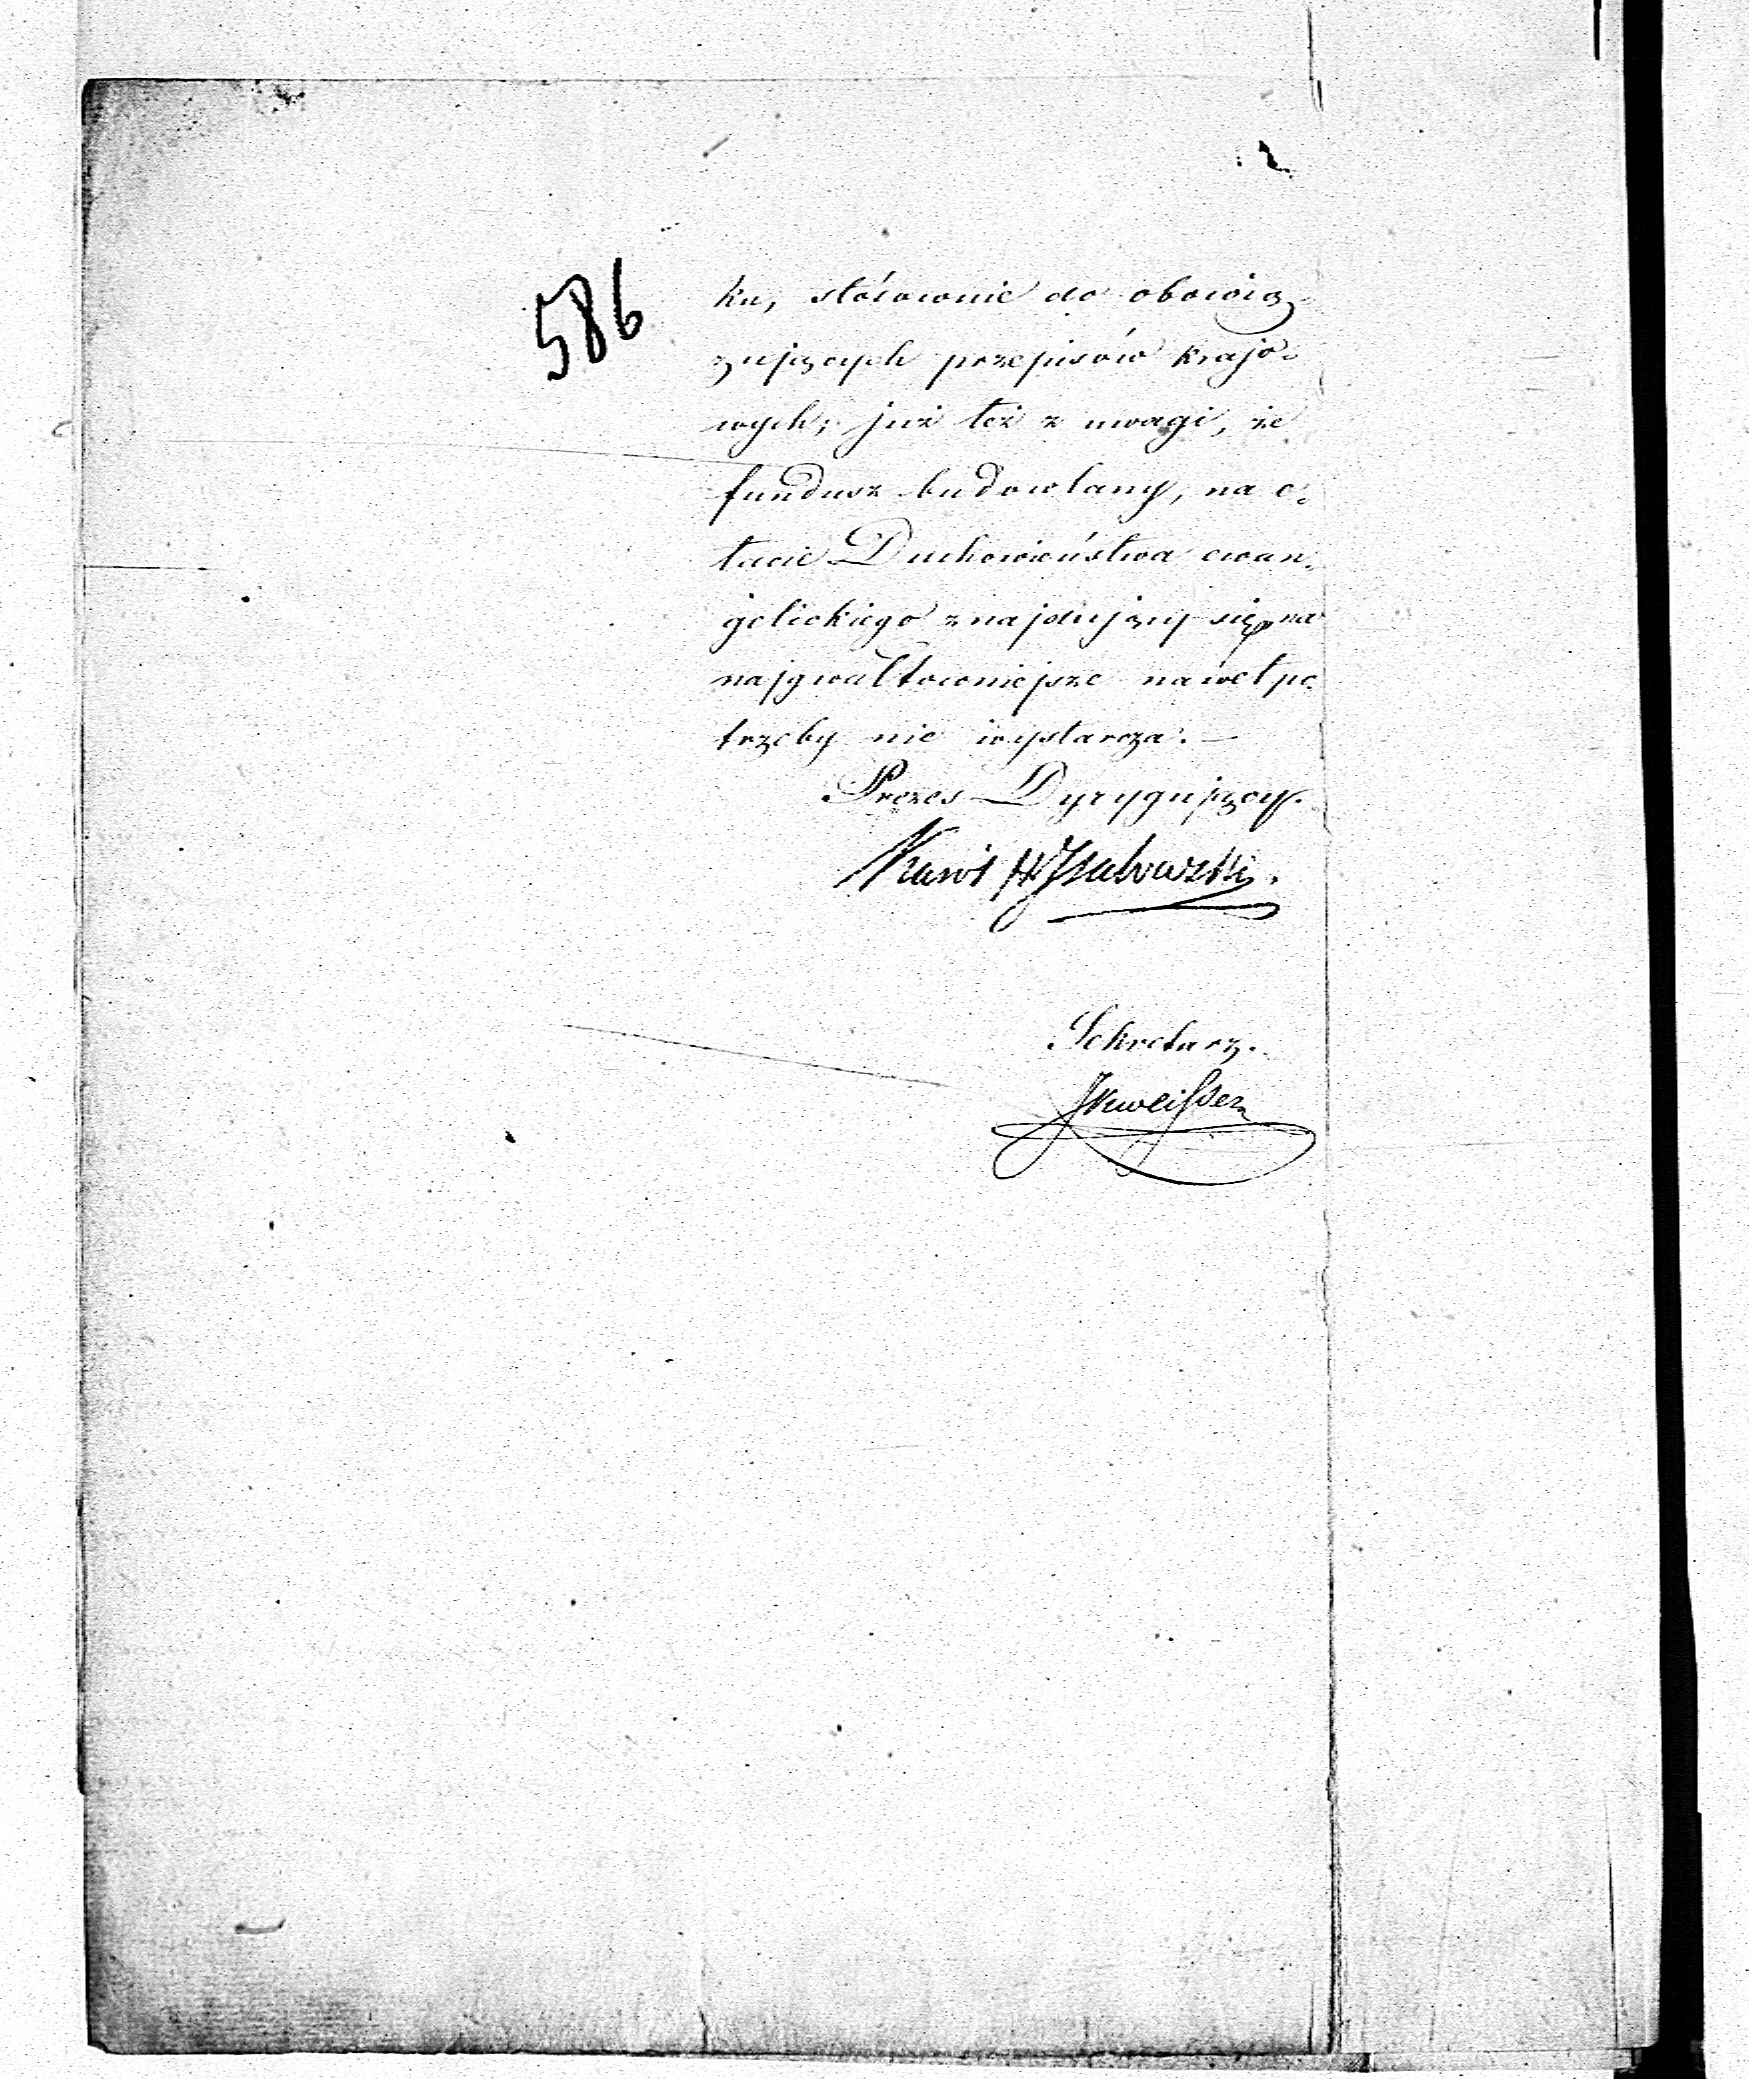 586
ku, stósownie do obowią-
zujących przepisów krajo-
wych; już też z uwagi, że
fundusz budowlany, na e-
tacie Duchowieństwa ewan-
gelickiego znajdujący się, na
najgwałtowniejsze nawet po-
trzeby nie wystarcza. —
Prezes Dyrygujący.
Sekretarz.